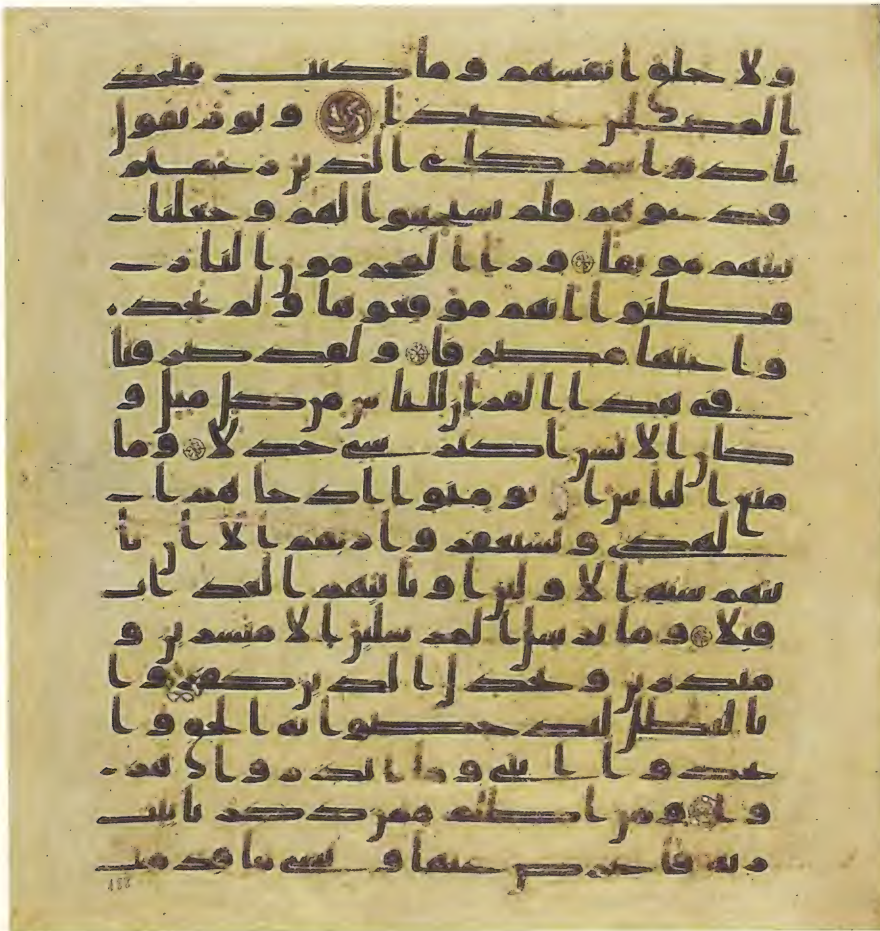 ولا خلق انفسهم وما كنت متخذ
المضلين عضدا ويوم يقول
نادوا شركاى الذين زعمتم
فدعوهم فلم يستجيبوا لهم وجعلنا
بينهم موبقا ورا المجرمون النار
فظنوا انهم موقعوها ولم يجد
وا عنها مصرفا ولقد صرفنا
فى هذا القران للناس من كل مثل و
كان الانسن اكثر شى جدلا وما
منع الناس ان يومنوا اذ جاهم ا
لهدى ويستغفروا ربهم الا ان تا
تيهم سنة الاولين او ياتيهم العذاب
قبلا وما نرسل المرسلين الا مبشرين و
منذرين ويجدل الذين كفروا
بالبطل ليدحضوا به الحق وا
تخذوا ايتى وما انذروا هز
وا ومن اظلم ممن ذكر بايت
ربه فاعرض عنها ونسى ما قدمت